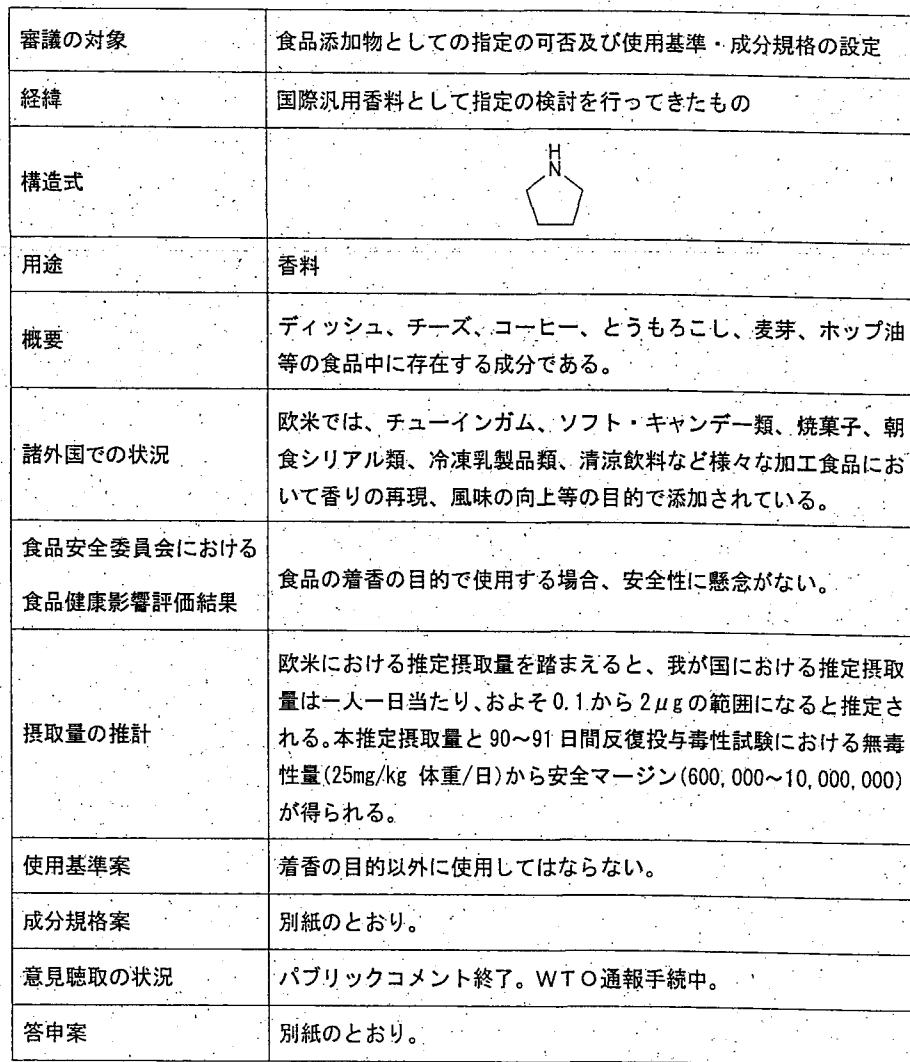 審議の対象
食品添加物としての指定の可否及び使用基準・成分規格の設定
経緯
国際汎用香料として指定の検討を行ってきたもの
構造式
H
N
用途
香料
概要
ディッシュ、チーズ、コーヒー、とうもろこし、麦芽、ホップ油
等の食品中に存在する成分である。
諸外国での状況
欧米では、チューインガム、ソフト・キャンデー類、焼菓子、朝
食シリアル類、冷凍乳製品類、清涼飲料など様々な加工食品にお
いて香りの再現、風味の向上等の目的で添加されている。
食品安全委員会における
食品健康影響評価結果
食品の着香の目的で使用する場合、安全性に懸念がない。
摂取量の推計
欧米における推定摂取量を踏まえると、我が国における推定摂取
量は一人一日当たり、およそ0.1から2μgの範囲になると推定さ
れる。本推定摂取量と90~91日間反復投与毒性試験における無毒
性量(25mg/kg 体重/日)から安全マージン(600,000~10,000,000)
が得られる。
使用基準案
着香の目的以外に使用してはならない。
成分規格案
別紙のとおり。
意見聴取の状況
パブリックコメント終了。WTO通報手続中。
答申案
別紙のとおり。